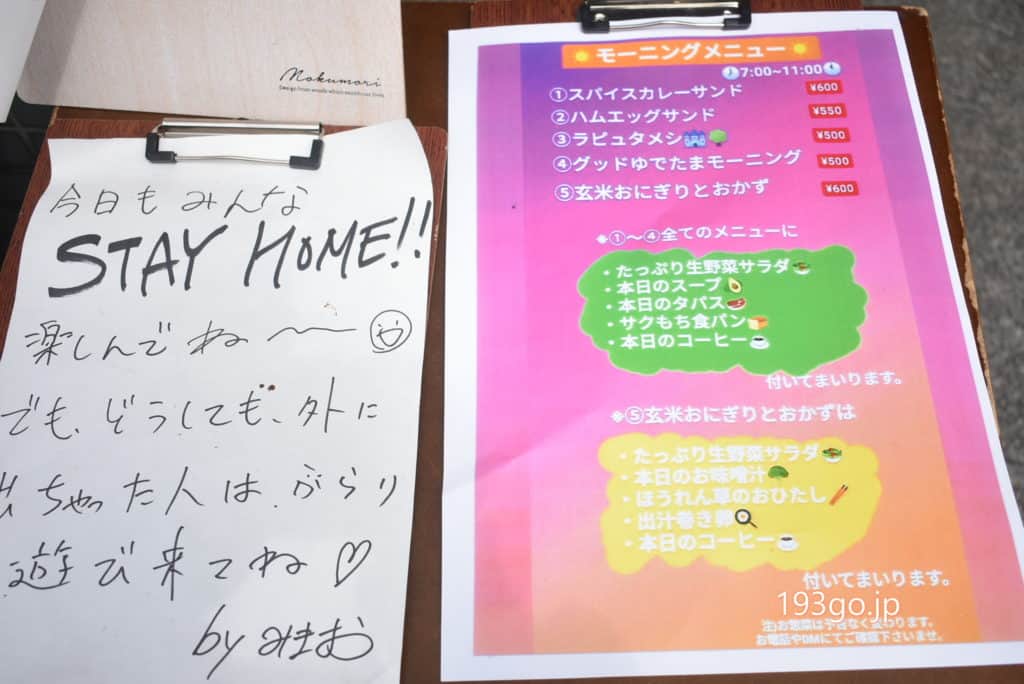 Mokumori
今日もみんな
STAY HOME!!
楽しんでね〜
でも、どうしても、外に
出ちゃった人は、ぶらり
遊び来てね♡
by みきお
モーニングメニュー
7:00~11:00
①スパイスカレーサンド ¥600
②ハムエッグサンド ¥550
③ラピュタメシ🏰🌳 ¥500
④グッドゆでたまモーニング ¥500
⑤玄米おにぎりとおかず ¥600
※①〜④全てのメニューに
・たっぷり生野菜サラダ🥗
・本日のスープ🥑
・本日のタパス🥩
・サクもち食パン🍞
・本日のコーヒー☕
付いてまいります。
※⑤玄米おにぎりとおかずは
・たっぷり生野菜サラダ🥗
・本日のお味噌汁🥦
・ほうれん草のおひたし🥢
・出汁巻き卵🍳
・本日のコーヒー☕
付いてまいります。
193go.jp
注)お惣菜は予告なく変わります。
お電話やDMにてご確認下さいませ。